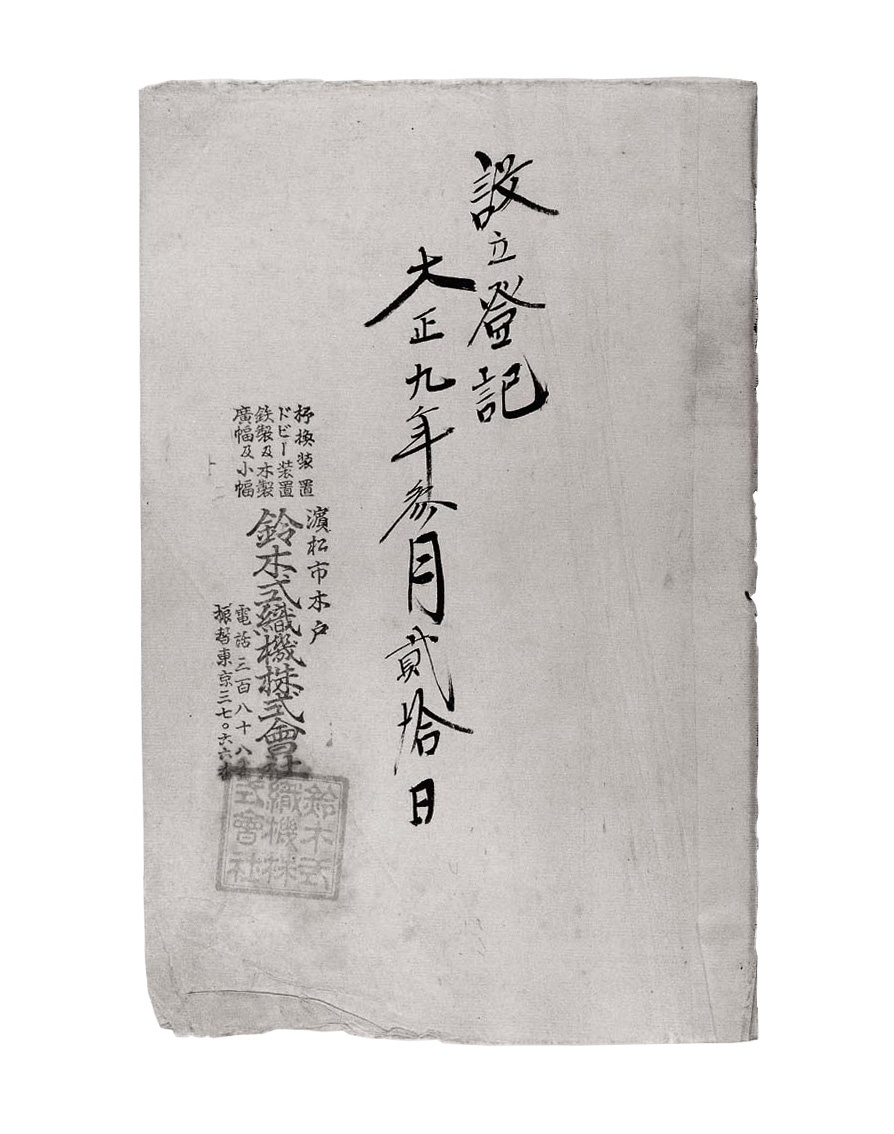 設立登記
大正九年参月貳拾日
杼換装置
ドビー装置
鉄製及木製
廣幅及小幅
濱松市木戸
鈴木式織機株式會社
電話三百八十八
振替東京三七〇六六
鈴木式
織機株
式會社